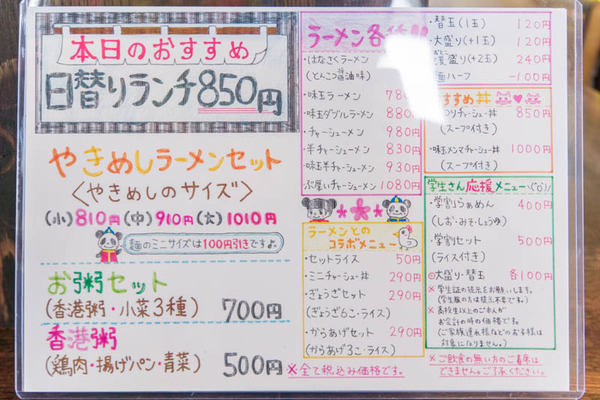 本日のおすすめ
日替りランチ850円
やきめしラーメンセット
〈やきめしのサイズ〉
(小)810円(中)910円(大)1010円
麺のミニサイズは100円引きです♪
お粥セット
(香港粥・小菜3種) 700円
香港粥
(鶏肉・揚げパン・青菜) 500円
ラーメン各種
・はなさくラーメン
(とんこつ醤油味)
・味玉ラーメン
・味玉ダブルラーメン 880
・チャーシューメン 980円
・半チャーシューメン 830円
・味玉半チャーシューメン 930円
・ぶ厚いチャーシューメン 1080円
ラーメンとの
コラボメニュー
・セットライス 50円
・ミニチャーシュー丼 290円
・ぎょうざセット 290円
(ぎょうざ6こ・ライス)
・からあげセット 290円
(からあげ3こ・ライス)
※全て税込み価格です。
・替玉(1玉) 120円
・大盛り(+1玉) 120円
盛り(+2玉) 240円
ハーフ -100円
すすめ丼
チャーシュー丼 850円
(スープ付き)
・味玉メンマチャーシュー丼 1000円
(スープ付き)
学生さん応援メニュー
・学割らぁめん 400円
(しお・みそ・しょうゆ)
・学割セット 500円
(ライス付き)
◎大盛り・替玉 各100円
※学生証の提示をお願いします。
(学生服の方は提示不要です)
※高校生以上のご本人が
お会計の時の価格です。
(ご家族連れ様などのお子様は
対象になりません。)
※ご飲食の無い方のご着席は
できません。ご了承ください。